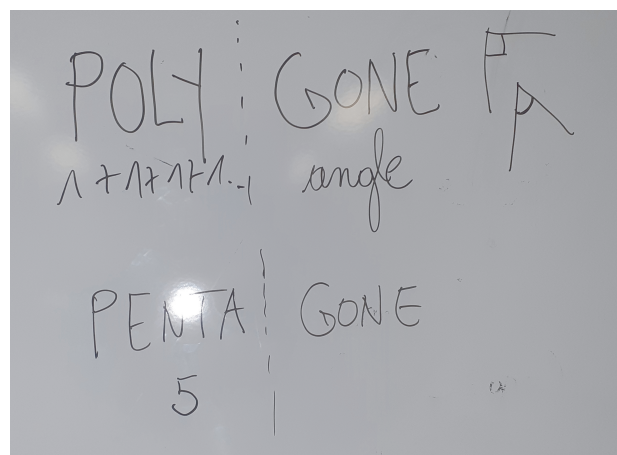 POLY GONE
1+1+1+1... angle
PENTA GONE
5